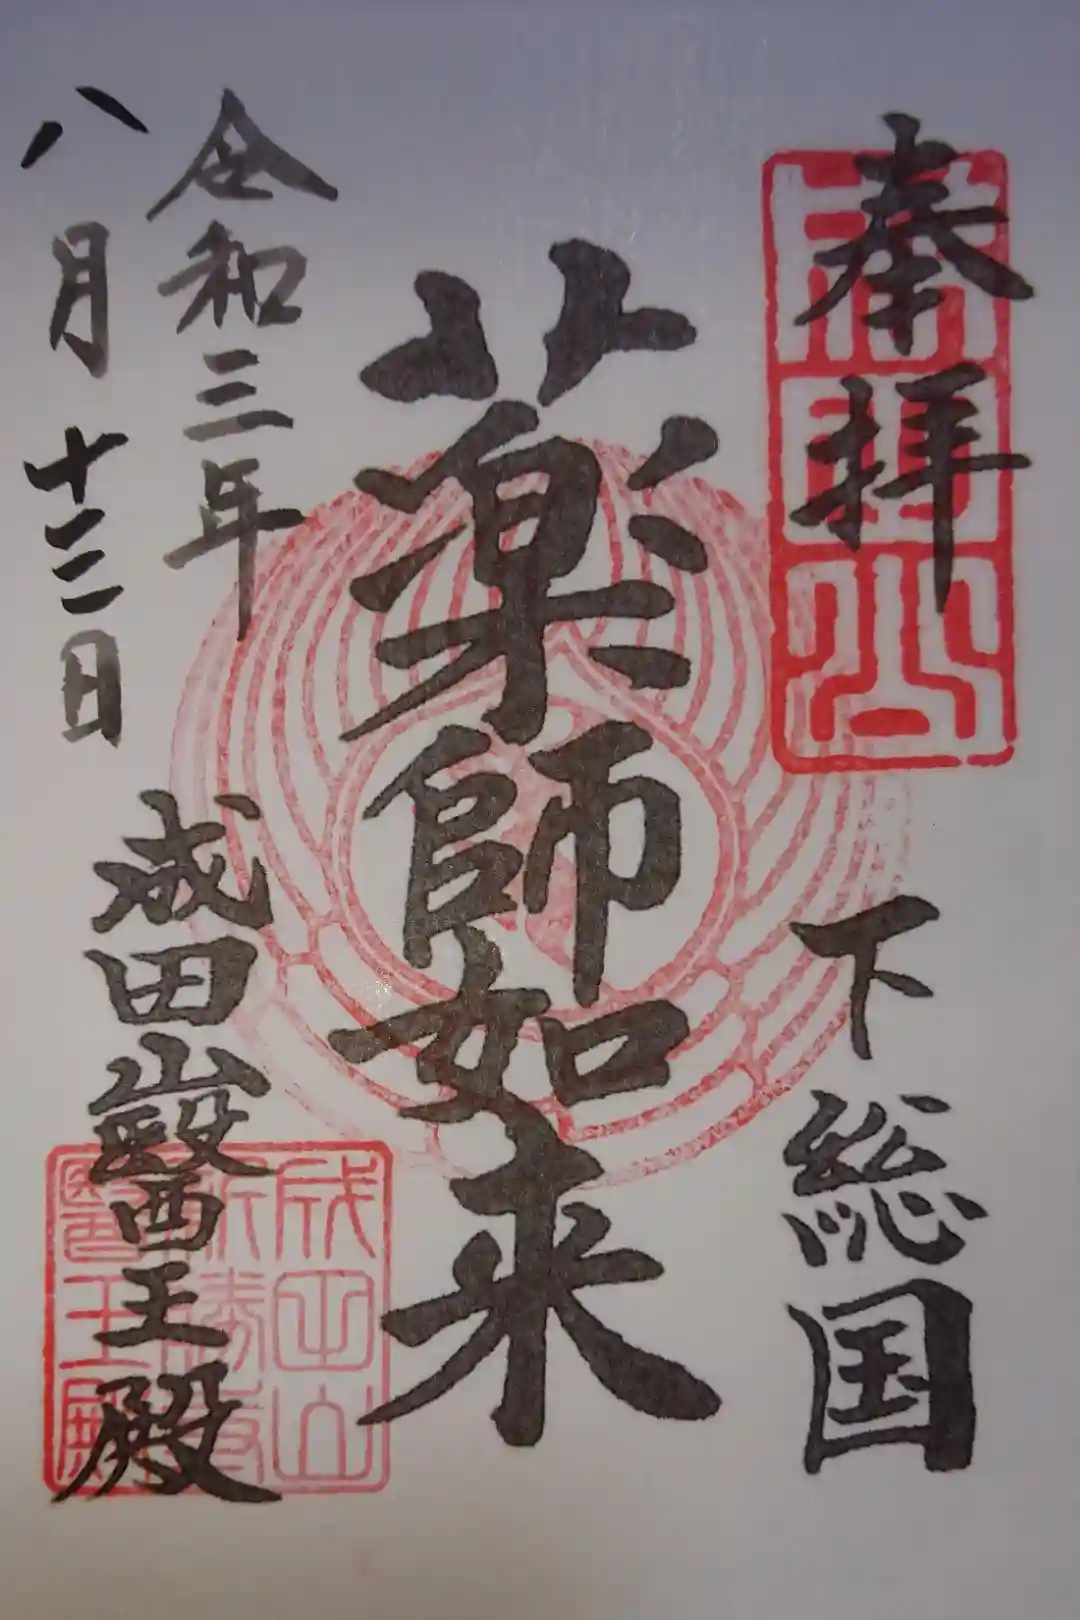 奉拝
下総国
薬師如来
令和三年
八月十二日
成田山醫王殿
成田山
新勝寺
醫王殿